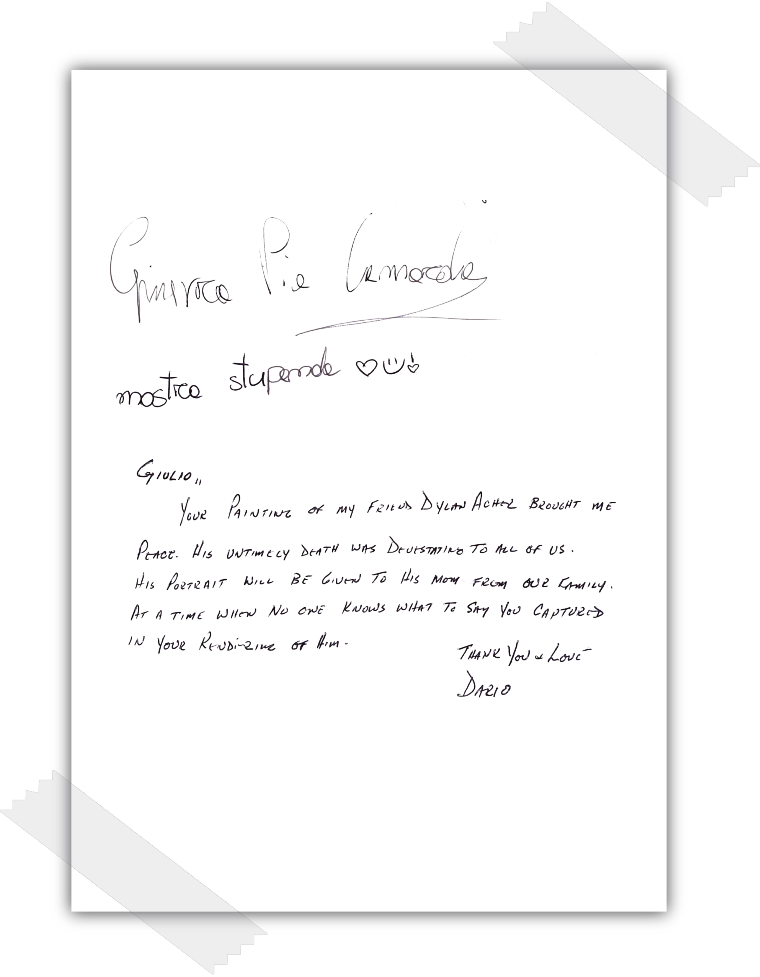 Ginevra Pia
mostra stupenda
GIULIO,,
YOUR PAINTING OF MY FRIEND DYLAN BROUGHT ME
PEACE. HIS UNTIMELY DEATH WAS DEVESTATING TO ALL OF US.
HIS PORTRAIT WILL BE GIVEN TO HIS MOM FROM OUR FAMILY.
AT A TIME WHEN NO ONE KNOWS WHAT TO SAY YOU CAPTURED
IN YOUR OF HIM.
THANK YOU & LOVE
DARIO